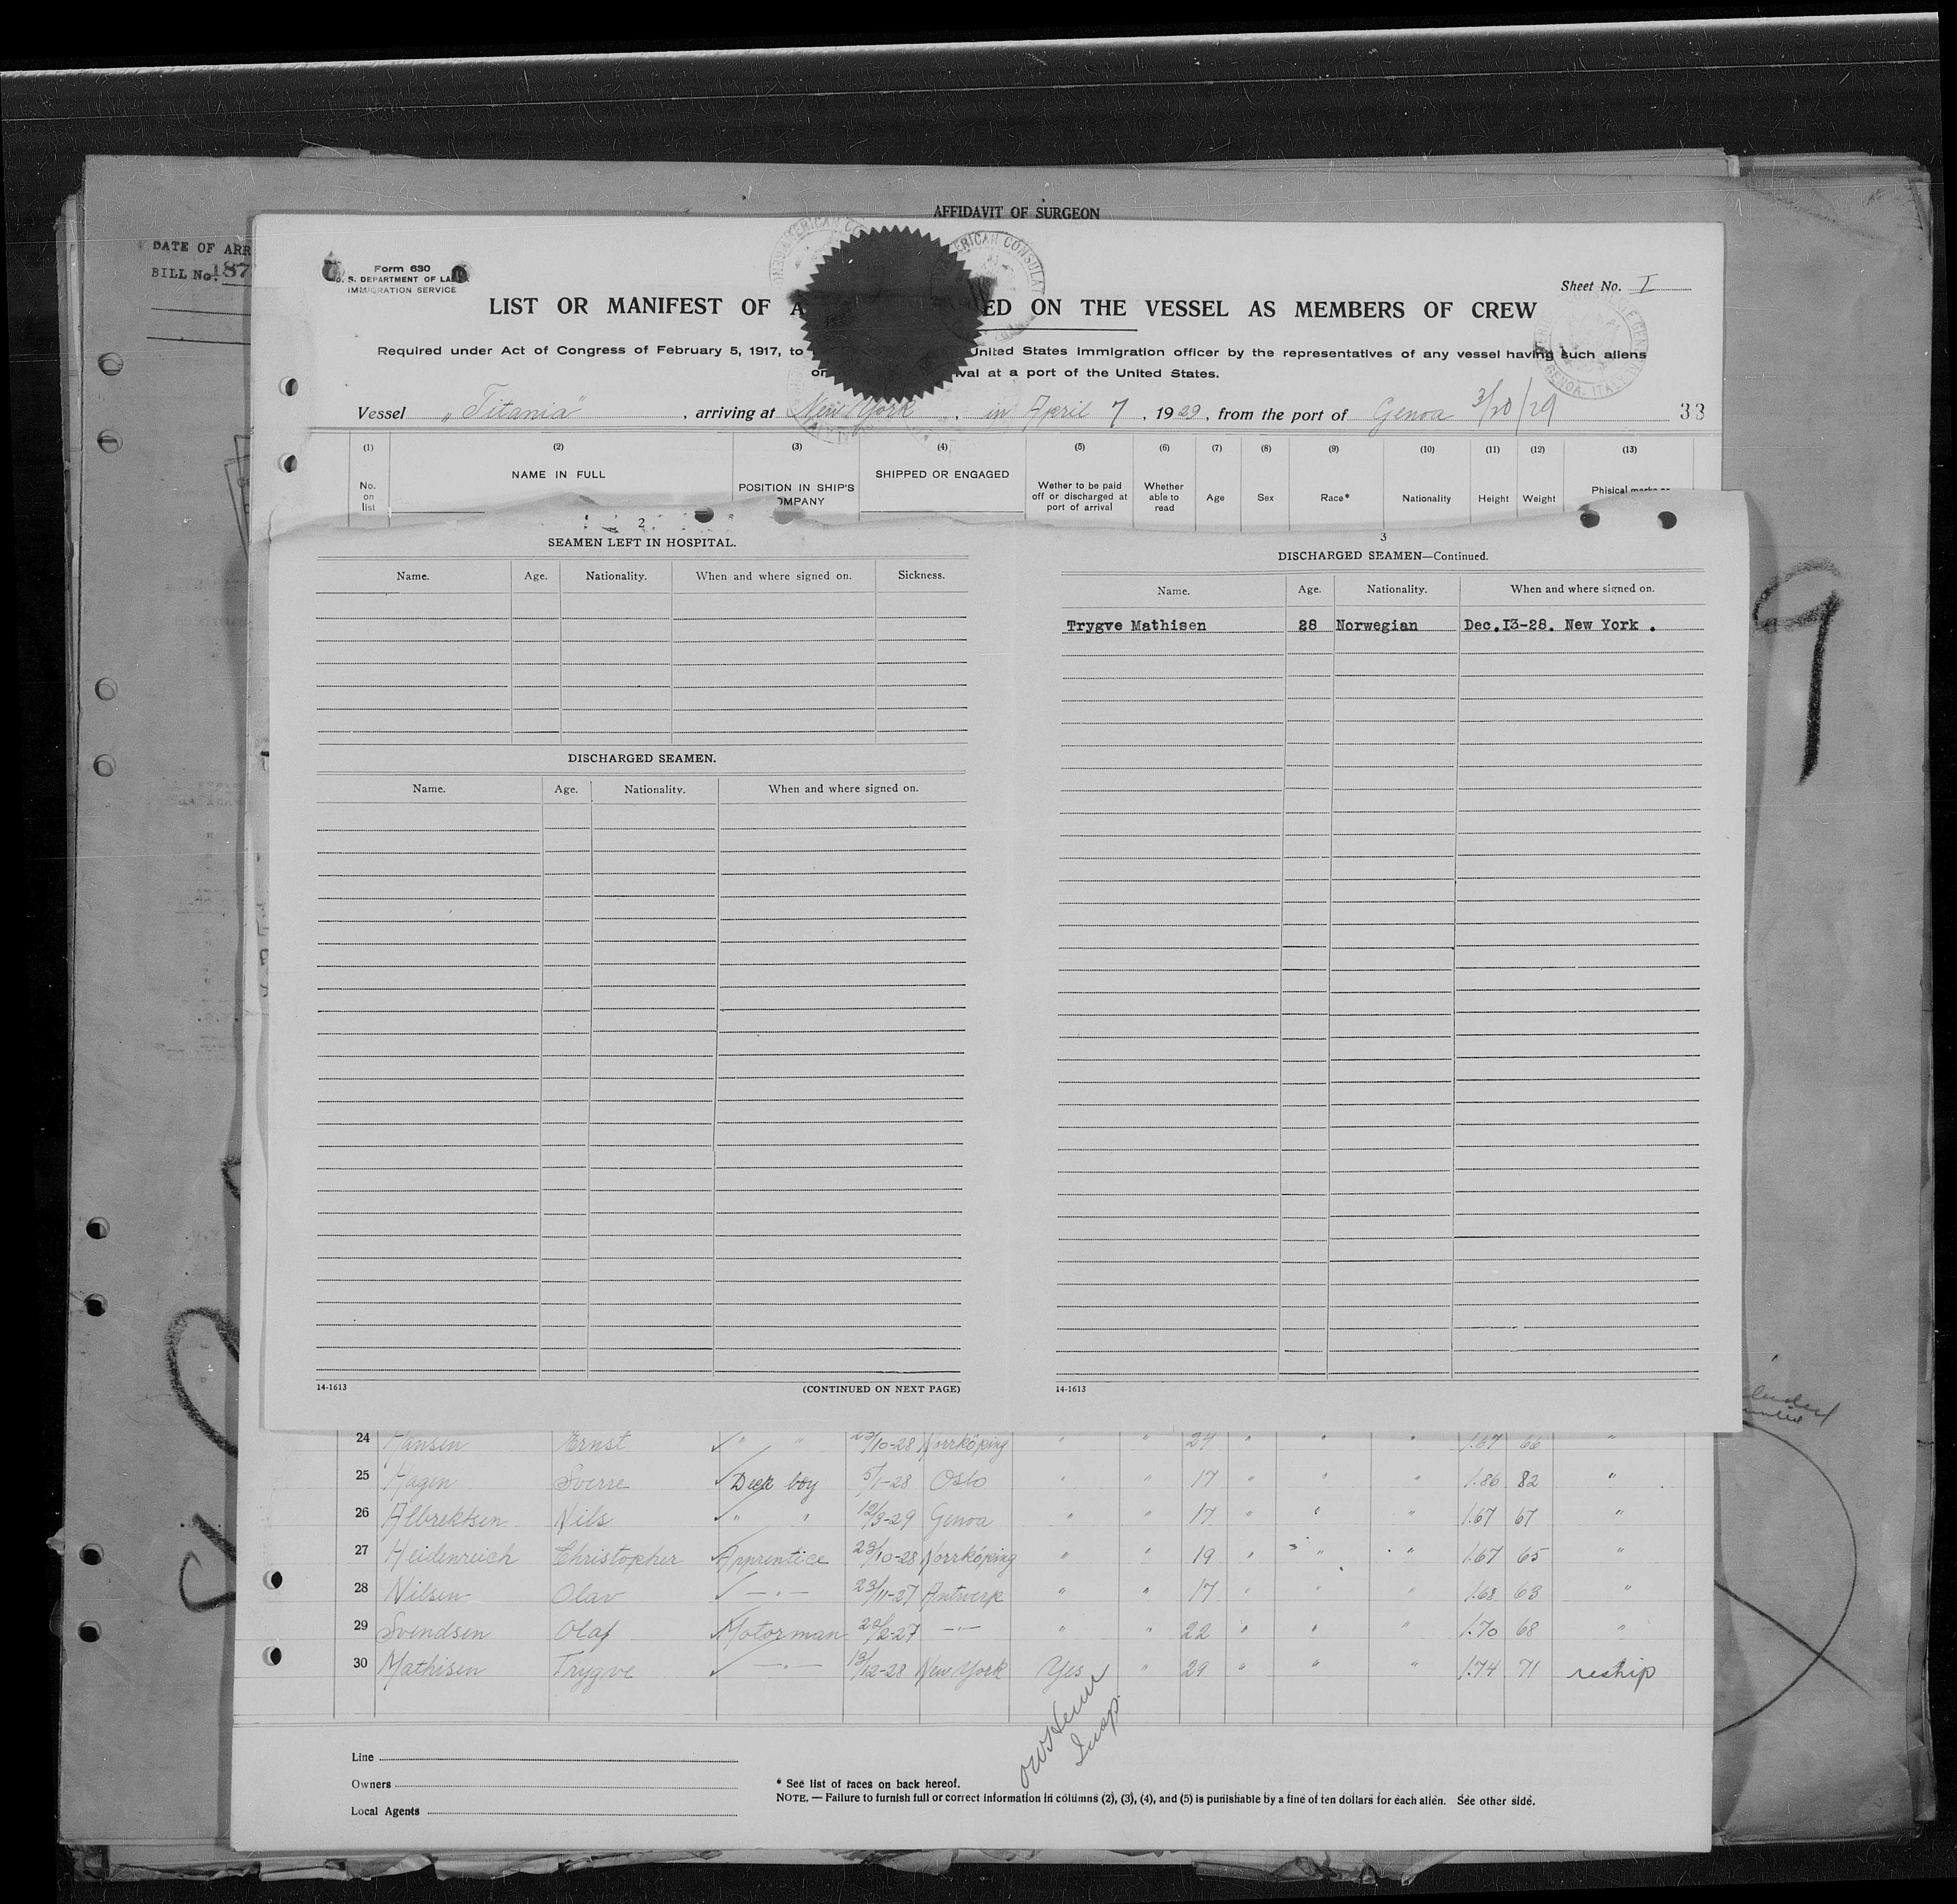 AFFIDAVIT OF SURGEON
DATE OF ARR
BILL No. 187
Form 630
U. S. DEPARTMENT OF LABOR
IMMIGRATION SERVICE
Sheet No. I
LIST OR MANIFEST OF A ED ON THE VESSEL AS MEMBERS OF CREW
Required under Act of Congress of February 5, 1917, to United States Immigration officer by the representatives of any vessel having such aliens
on val at a port of the United States.
Vessel "Titania", arriving at New York, in April 7, 1929, from the port of Genoa 3/20/29 33
(1) (2) (3) (4) (5) (6) (7) (8) (9) (10) (11) (12) (13)
No. on list NAME IN FULL POSITION IN SHIP'S OMPANY SHIPPED OR ENGAGED Wether to be paid off or discharged at port of arrival Whether able to read Age Sex Race* Nationality Height Weight Phisical marks or
2
SEAMEN LEFT IN HOSPITAL.
Name. Age. Nationality. When and where signed on. Sickness.
DISCHARGED SEAMEN.
Name. Age. Nationality. When and where signed on.
14-1613 (CONTINUED ON NEXT PAGE)
3
DISCHARGED SEAMEN—Continued.
Name. Age. Nationality. When and where signed on.
Trygve Mathisen 28 Norwegian Dec.I3-28. New York .
14-1613
24 Hansen Ernst " " 23/10-28 Norrköping " " 24 " " " 1.67 66 "
25 Hagen Sverre Deck boy 5/1-28 Oslo " " 17 " " 1.86 82 "
26 Albrektsen Nils " " 12/3-29 Genoa " " 17 " " " 1.67 67 "
27 Heidenreich Christopher Apprentice 23/10-28 Norrköping " " 19 " " " 1.67 65 "
28 Nilsen Olav —"— 23/11-27 Antwerp " " 17 " " " 1.68 63 "
29 Svendsen Olaf Motorman 22/2-27 —"— " " 22 " " " 1.70 68 "
30 Mathisen Trygve —"— 13/12-28 New York Yes " 29 " " " 1.74 71 reship
Insp.
Line
Owners
Local Agents
* See list of races on back hereof.
NOTE. — Failure to furnish full or correct information in columns (2), (3), (4), and (5) is punishable by a fine of ten dollars for each alien. See other side.
9